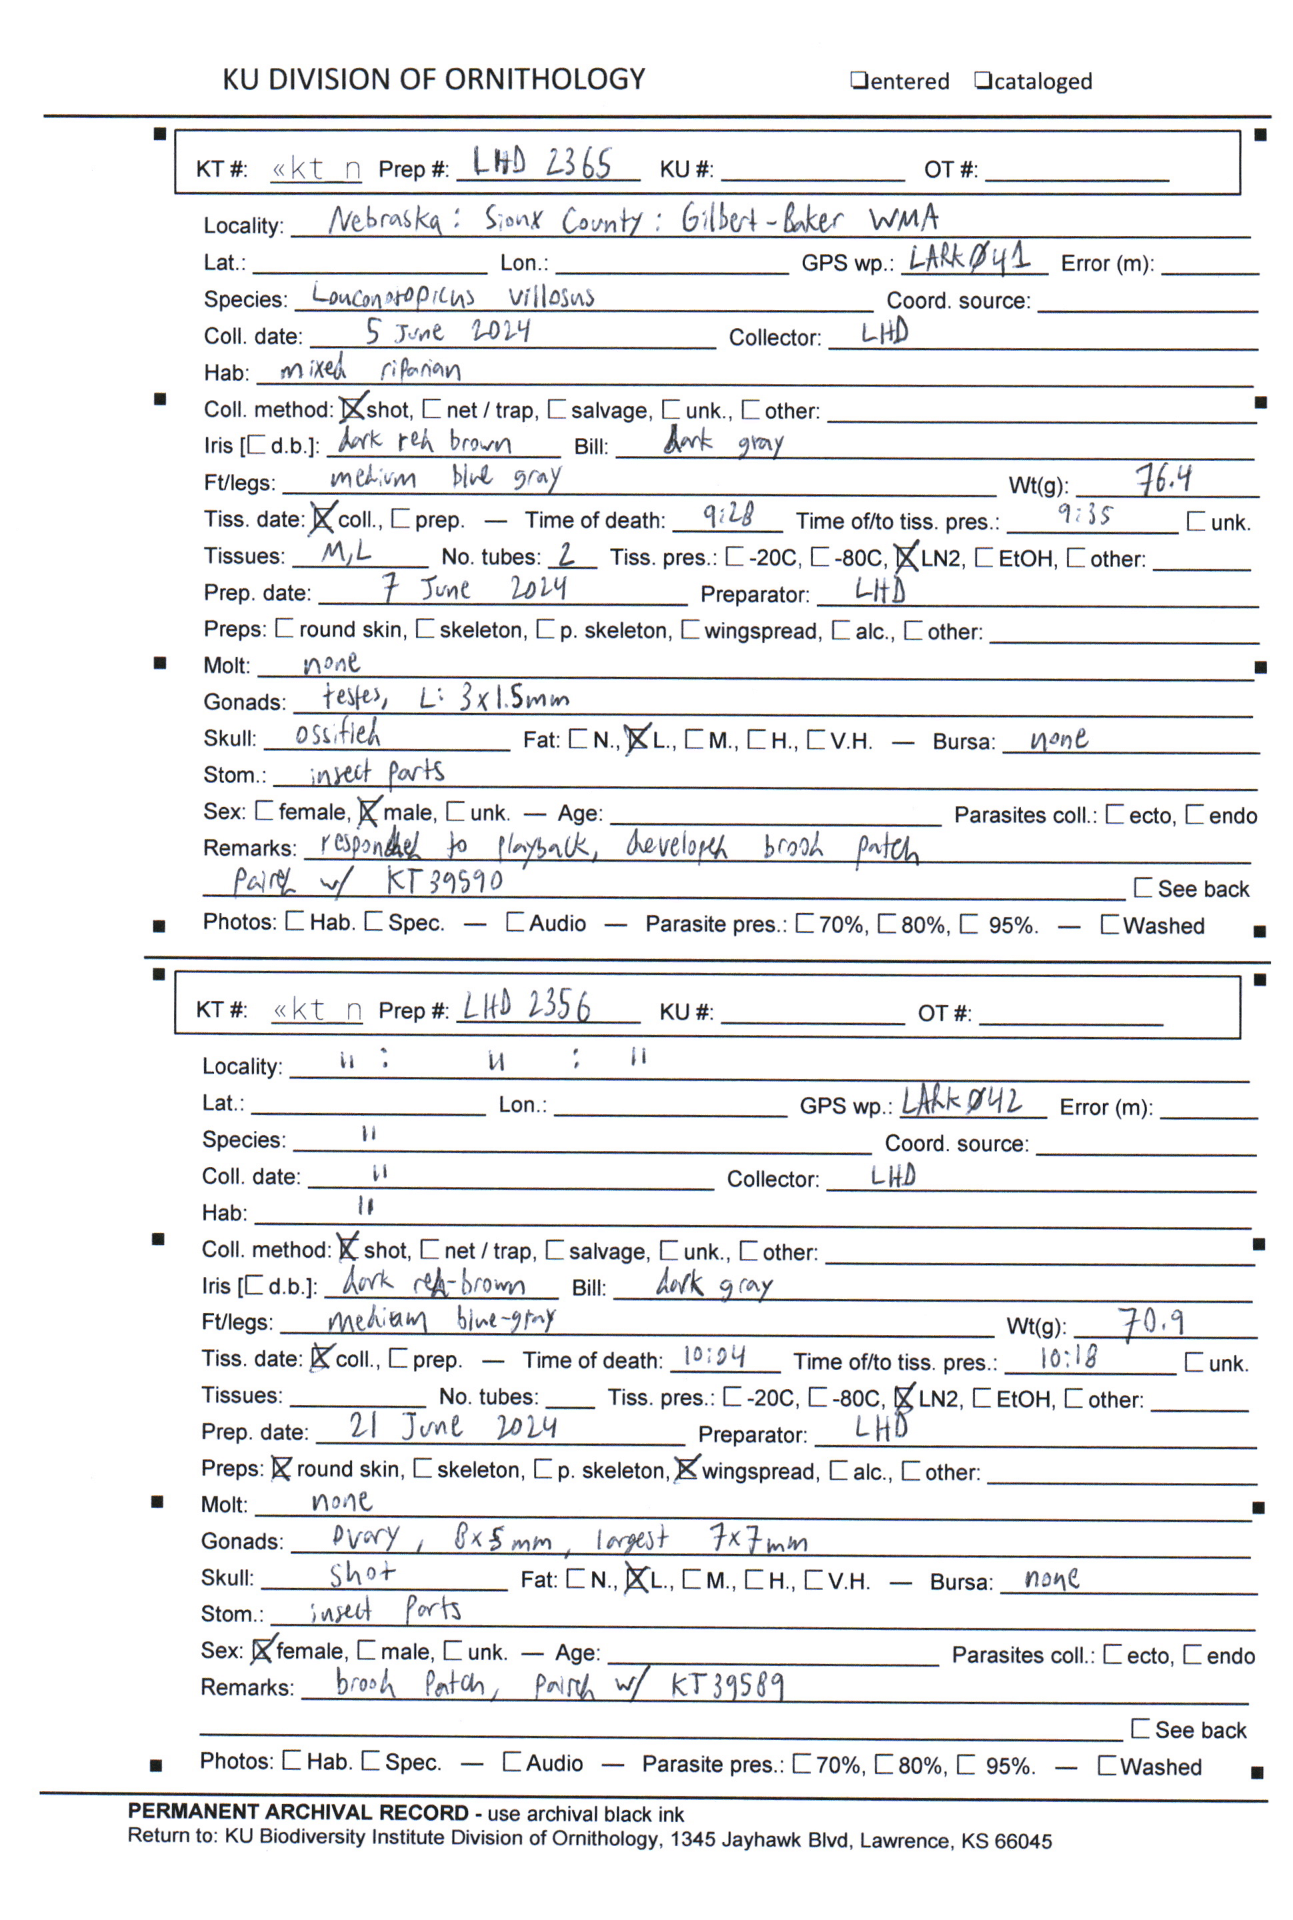 KU DIVISION OF ORNITHOLOGY ❑entered ❑cataloged
KT #: «kt n Prep #: LHD 2365 KU #: OT #:
Locality: Nebraska : Sioux County : Gilbert-Baker WMA
Lat.: Lon.: GPS wp.: LARKØ41 Error (m):
Species: Leuconotopicus villosus Coord. source:
Coll. date: 5 June 2024 Collector: LHD
Hab: mixed riparian
Coll. method: ☒shot, ☐net / trap, ☐salvage, ☐unk., ☐other:
Iris [☐d.b.]: dark red brown Bill: dark gray
Ft/legs: medium blue gray Wt(g): 76.4
Tiss. date: ☒coll., ☐prep. — Time of death: 9:28 Time of/to tiss. pres.: 9:35 ☐unk.
Tissues: M,L No. tubes: 2 Tiss. pres.: ☐-20C, ☐-80C, ☒LN2, ☐EtOH, ☐other:
Prep. date: 7 June 2024 Preparator: LHD
Preps: ☐round skin, ☐skeleton, ☐p. skeleton, ☐wingspread, ☐alc., ☐other:
Molt: none
Gonads: testes, L: 3x1.5mm
Skull: ossified Fat: ☐N., ☒L., ☐M., ☐H., ☐V.H. — Bursa: none
Stom.: insect parts
Sex: ☐female, ☒male, ☐unk. — Age: Parasites coll.: ☐ecto, ☐endo
Remarks: responded to playback, developed brood patch
Paired w/ KT39590 ☐See back
Photos: ☐Hab. ☐Spec. — ☐Audio — Parasite pres.: ☐70%, ☐80%, ☐ 95%. — ☐Washed
KT #: «kt n Prep #: LHD 2356 KU #: OT #:
Locality: " : " : "
Lat.: Lon.: GPS wp.: LARKØ42 Error (m):
Species: " Coord. source:
Coll. date: " Collector: LHD
Hab: "
Coll. method: ☒shot, ☐net / trap, ☐salvage, ☐unk., ☐other:
Iris [☐d.b.]: dark red-brown Bill: dark gray
Ft/legs: medium blue-gray Wt(g): 70.9
Tiss. date: ☒coll., ☐prep. — Time of death: 10:04 Time of/to tiss. pres.: 10:18 ☐unk.
Tissues: No. tubes: Tiss. pres.: ☐-20C, ☐-80C, ☒LN2, ☐EtOH, ☐other:
Prep. date: 21 June 2024 Preparator: LHD
Preps: ☒round skin, ☐skeleton, ☐p. skeleton, ☒wingspread, ☐alc., ☐other:
Molt: none
Gonads: Ovary, 8x5mm, largest 7x7mm
Skull: shot Fat: ☐N., ☒L., ☐M., ☐H., ☐V.H. — Bursa: none
Stom.: insect parts
Sex: ☒female, ☐male, ☐unk. — Age: Parasites coll.: ☐ecto, ☐endo
Remarks: brood patch, paired w/ KT39589
☐See back
Photos: ☐Hab. ☐Spec. — ☐Audio — Parasite pres.: ☐70%, ☐80%, ☐ 95%. — ☐Washed
PERMANENT ARCHIVAL RECORD - use archival black ink
Return to: KU Biodiversity Institute Division of Ornithology, 1345 Jayhawk Blvd, Lawrence, KS 66045